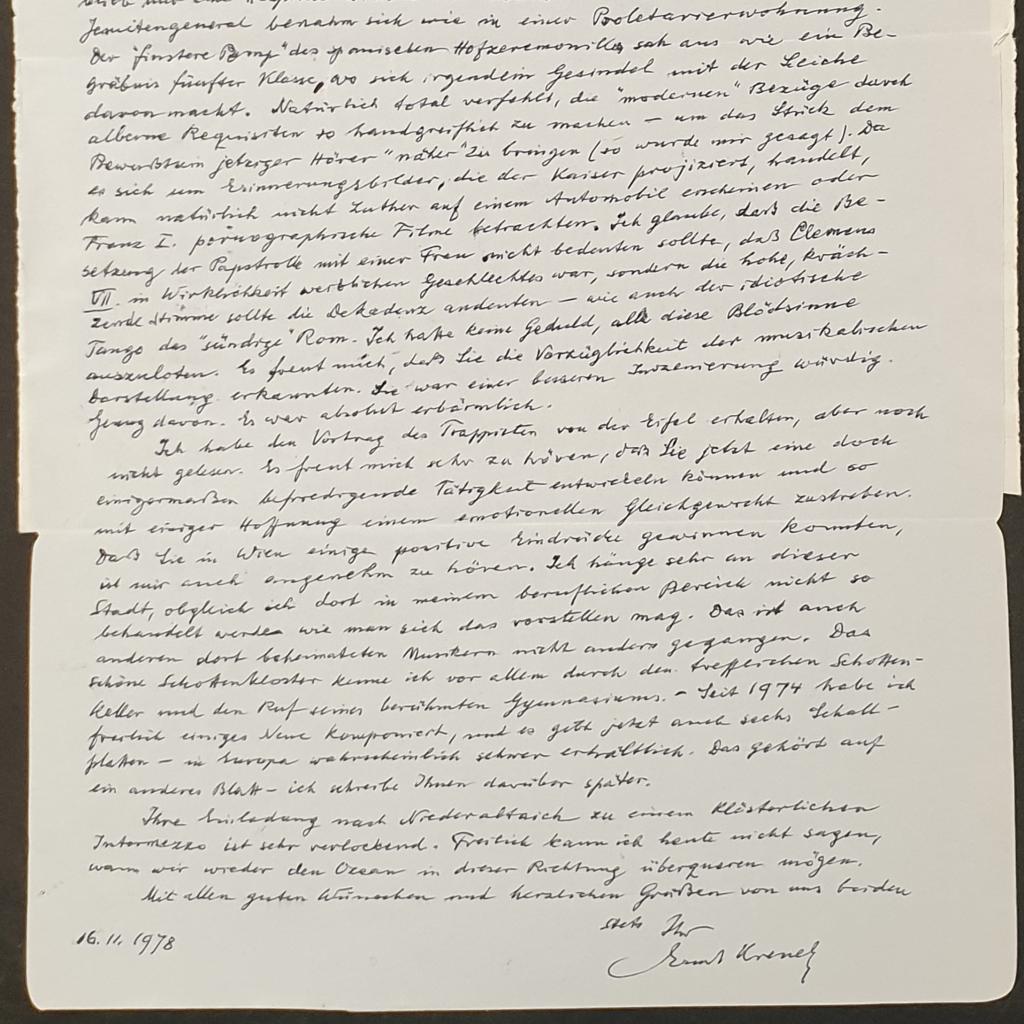 Jesuitengeneral benahm sich wie in einer Proletarierwohnung.
Der "finstere Pomp" des spanischen Hofzeremoniells sah aus wie ein Be-
gräbnis fünfter Klasse, wo sich irgendein Gesindel mit der Leiche
davonmacht. Natürlich total verfehlt, die "modernen" Bezüge durch
alberne Requisiten so handgreiflich zu machen – um das Stück dem
Bewußtsein jetziger Hörer "näher" zu bringen (so wurde mir gesagt). Da
es sich um Erinnerungsbilder, die der Kaiser projiziert, handelt,
kann natürlich nicht Luther auf einem Automobil erscheinen oder
Franz I. pornographische Filme betrachten. Ich glaube, daß die Be-
setzung der Papstrolle mit einer Frau nicht bedeuten sollte, daß Clemens
VII. in Wirklichkeit weiblichen Geschlechtes war, sondern die hohe, kräch-
zende Stimme sollte die Dekadenz andeuten – wie auch der idiotische
Tango das "sündige" Rom. Ich hatte keine Geduld, alle diese Blödsinne
auszuloten. Es freut mich, daß Sie die Vorzüglichkeit der musikalischen
Darstellung erkannten. Sie war einer besseren Inszenierung würdig.
Genug davon. Es war absolut erbärmlich.
Ich habe den Vortrag des Trappisten von der Eifel erhalten, aber noch
nicht gelesen. Es freut mich sehr zu hören, daß Sie jetzt eine doch
einigermaßen befriedigende Tätigkeit entwickeln können und so
mit einiger Hoffnung einem emotionellen Gleichgewicht zustreben.
Daß Sie in Wien einige positive Eindrücke gewinnen konnten,
ist mir auch angenehm zu hören. Ich hänge sehr an dieser
Stadt, obgleich ich dort in meinem beruflichen Bereich nicht so
behandelt werde wie man sich das vorstellen mag. Das ist auch
anderen dort beheimateten Musikern nicht anders gegangen. Das
schöne Schottenkloster kenne ich vor allem durch den trefflichen Schotten-
keller und den Ruf seines berühmten Gymnasiums. – Seit 1974 habe ich
freilich einiges Neue komponiert, und es gibt jetzt auch sechs Schall-
platten – in Europa wahrscheinlich schwer erhältlich. Das gehört auf
ein anderes Blatt – ich schreibe Ihnen darüber später.
Ihre Einladung nach Niederaltaich zu einem klösterlichen
Intermezzo ist sehr verlockend. Freilich kann ich heute nicht sagen,
wann wir wieder den Ozean in dieser Richtung überqueren mögen.
Mit allen guten Wünschen und herzlichen Grüßen von uns beiden
stets Ihr
16.11.1978
Ernst Krenek